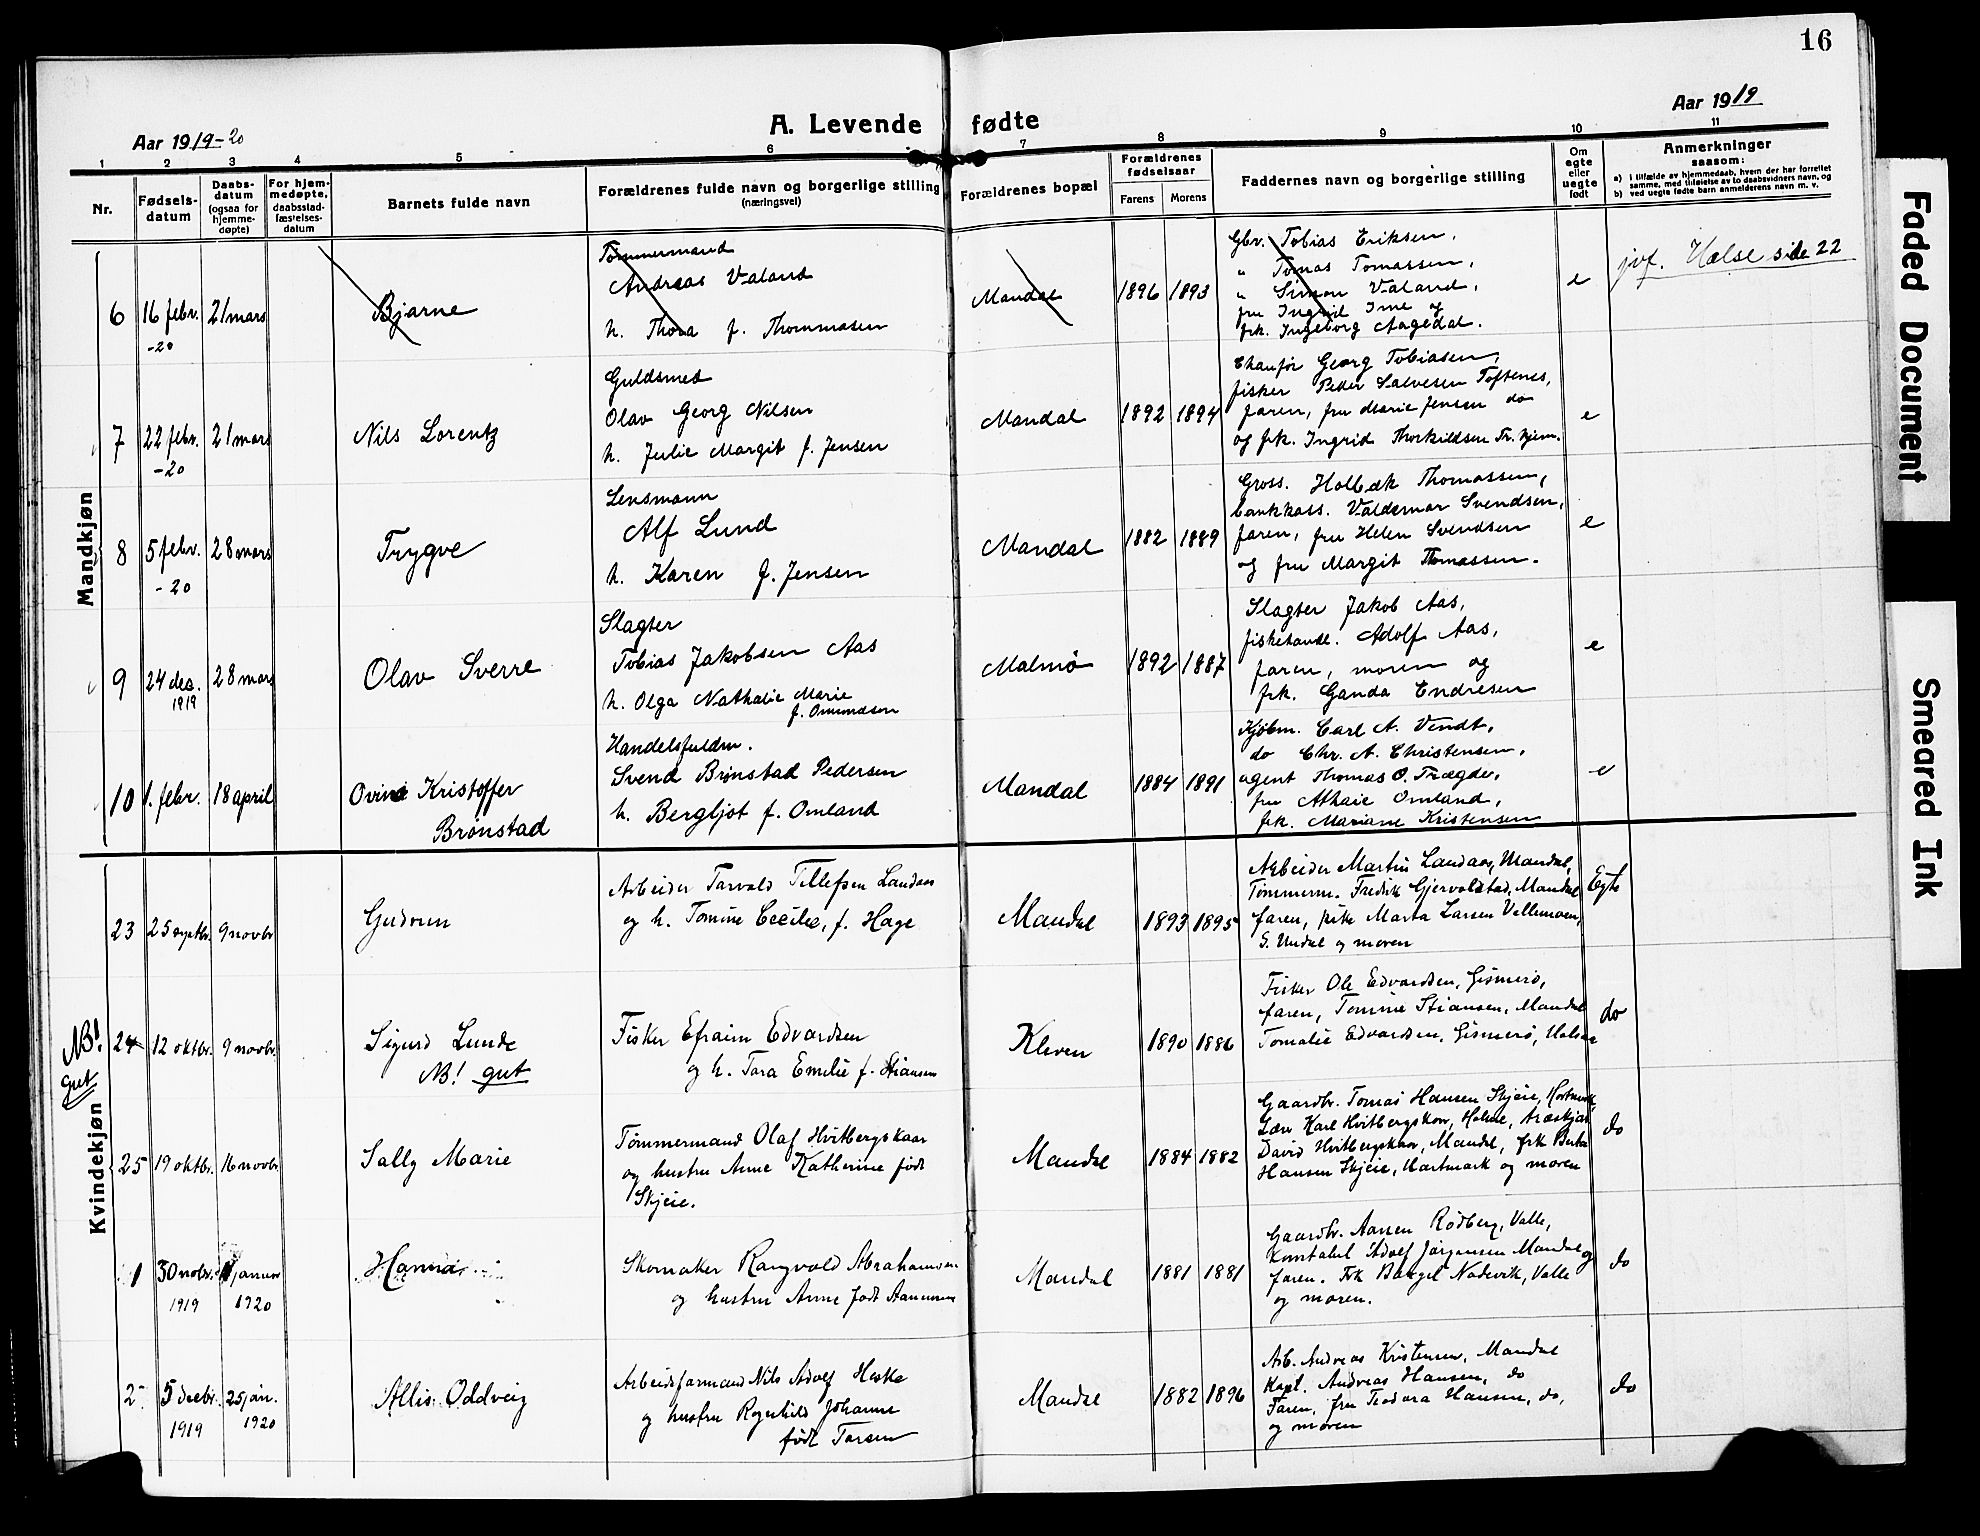 16
Aar 1919-20
A. Levende fødte
Aar 1919
1 2 3 4 5 6 7 8 9 10 11
Nr.
Fødsels-
datum
Daabs-
datum
(ogsaa for
hjemme-
døpte)
For hjem-
medøpte,
daabsstad-
fæstelses-
datum
Barnets fulde navn
Forældrenes fulde navn og borgerlige stilling
(næringsvei)
Forældrenes bopæl
Forældrenes
fødselsaar
Farens Morens
Faddernes navn og borgerlige stilling
Om
egte
eller
uegte
født
Anmerkninger
saasom:
a) i tilfælde av hjemmedaab, hvem der har forrettet
samme, med tilføielse av to daabsvidners navn, og
b) ved uegte fødte barn anmelderens navn m. v.
Mandkjøn
6 16 febr. -20 21 mars
Bjarne
Tømmermand
Andreas Valand
h. Thora f. Thommasen
Mandal 1896 1893
Gbr. Tobias Eriksen,
" Tomas Tomassen,
" Simon Valand,
fru Ingrid Ime og
frk. Ingeborg Aagedal.
e
jvf. Halse side 22
7 22 febr. -20 21 mars
Nils Lorentz
Guldsmed
Olav Georg Nilsen
h. Julie Margit f. Jensen
Mandal 1892 1894
Chaufør Georg Tobiasen,
fisker Peder Salvesen Toftenes,
faren, fru Marie Jensen do
og frk. Ingrid Thorkildsen Tr. hjem.
e
8 5 febr. -20 28 mars
Trygve
Lensmann
Alf Lund
h. Karen f. Jensen
Mandal 1882 1889
Gross. Holbæk Thomassen,
bankkass. Valdemar Svendsen,
faren, fru Helen Svendsen
og fru Margit Thomassen.
e
9 24 des. 1919 28 mars
Olav Sverre
Slagter
Tobias Jakobsen Aas
h. Olga Nathalie Marie
f. Ommdsen
Malmø 1892 1887
Slagter Jakob Aas,
fiskehandl. Adolf Aas,
faren, moren og
frk. Ganda Endresen
e
10 1. febr. 18 april
Kristoffer
Brønstad
Handelsfuldm.
Svend Brønstad Pedersen
h. Bergljot f. Omland
Mandal 1884 1891
Kjøbm. Carl A. Vendt,
do Chr. A. Christensen,
agent Thomas O. Trægde,
fru Athaie Omland,
frk. Mariane Kristensen
e
Kvindekjøn
23 25 septbr. 9 novbr
Gudrun
Arbeider Tarvald Tellefsen Landaas
og h. Tomine Cecilie, f. Hage
Mandal 1893 1895
Arbeider Martin Landaas, Mandal,
Tømmerm. Fredrik Gjervoldstad, Mandal
faren, frk Marta Larsen Vellemoen,
S. Undal og moren
Egte
NB!
gut
24 12 oktbr. 9 novbr.
Sigurd Lunde
NB! gut
Fisker Efraim Edvardsen
og h. Tora Emilie f. Stiansen
Kleven 1890 1886
Fisker Ole Edvardsen, Gismerø,
faren, Tomine Stiansen, Mandal
Tomalie Edvardsen, Gismerø, Halsaa
do
25 19 oktbr. 16 novbr.
Sally Marie
Tømmermand Olaf Hvitbergskaar
og hustru Anne Katherine født
Skjeie.
Mandal 1884 1882
Gaardbr. Tomas Hansen Skjeie, Hartmark,
Lær Karl Hvitbergskor, Holme,
David Hvitbergskaar, Mandal, frk Berta
Hansen Skjeie, Hartmark og moren
do
1 30 novbr. 1919 januar 1920
Hanna
Skomaker Rangvald Abrahamsen
og hustru Anne født Aanensen
Mandal 1881 1881
Gaardbr. Aanen Rødberg, Valle,
Konstabel Adolf Jørgensen Mandal og
faren. Frk Bergel Nødevik, Valle
og moren.
do
2 5 decbr. 1919 25 jan. 1920
Allis Oddveig
Arbeidsformand Nils Adolf Heske
og hustru Ragnhild Johanne
født Tarsen
Mandal 1882 1896
Arb. Andreas Kristensen, Mandal
Kapt. Andreas Hansen, do
Faren, fru Teodora Hansen, do,
og moren
do
Faded Document
Smeared Ink